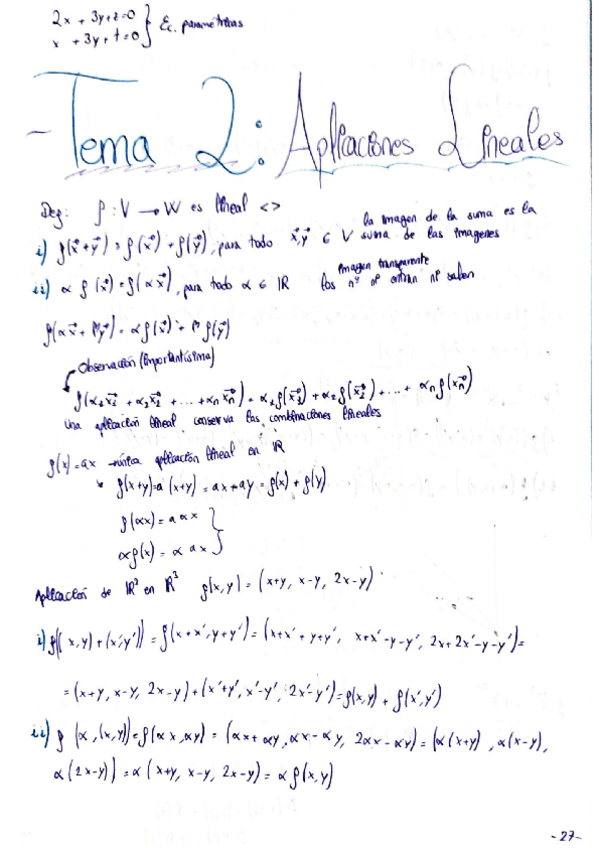 2x + 3y + z = 0 } Ec. paramétricas
x + 3y + t = 0
Tema 2: Aplicaciones Lineales
Def: f : V → W es lineal <>
i) f(x⃗ + y⃗) = f(x⃗) + f(y⃗), para todo x⃗, y⃗ ∈ V la imagen de la suma es la suma de las imagenes
ii) α f(x⃗) = f(αx⃗), para todo α ∈ IR los nº ni entran ni salen
imagen transparente
f(αx⃗ + βy⃗) = αf(x⃗) + βf(y⃗)
Observación (Importantísima)
f(α₁x⃗₁ + α₂x⃗₂ + ... + αₙx⃗ₙ) = α₁f(x⃗₁) + α₂f(x⃗₂) + ... + αₙf(x⃗ₙ)
Una aplicación lineal conserva las combinaciones lineales
f(x) = ax → única aplicación lineal en IR
f(x+y) = a(x+y) = ax + ay = f(x) + f(y)
f(αx) = a α x
αf(x) = α ax
Aplicación de IR² en IR³ f(x,y) = (x+y, x-y, 2x-y)
i) f((x,y) + (x',y')) = f(x+x', y+y') = (x+x'+y+y', x+x'-y-y', 2x+2x'-y-y') =
= (x+y, x-y, 2x-y) + (x'+y', x'-y', 2x'-y') = f(x,y) + f(x',y')
ii) f(α,(x,y)) = f(αx, αy) = (αx + αy, αx - αy, 2αx - αy) = (α(x+y), α(x-y),
α(2x-y)) = α(x+y, x-y, 2x-y) = αf(x,y)
-27-